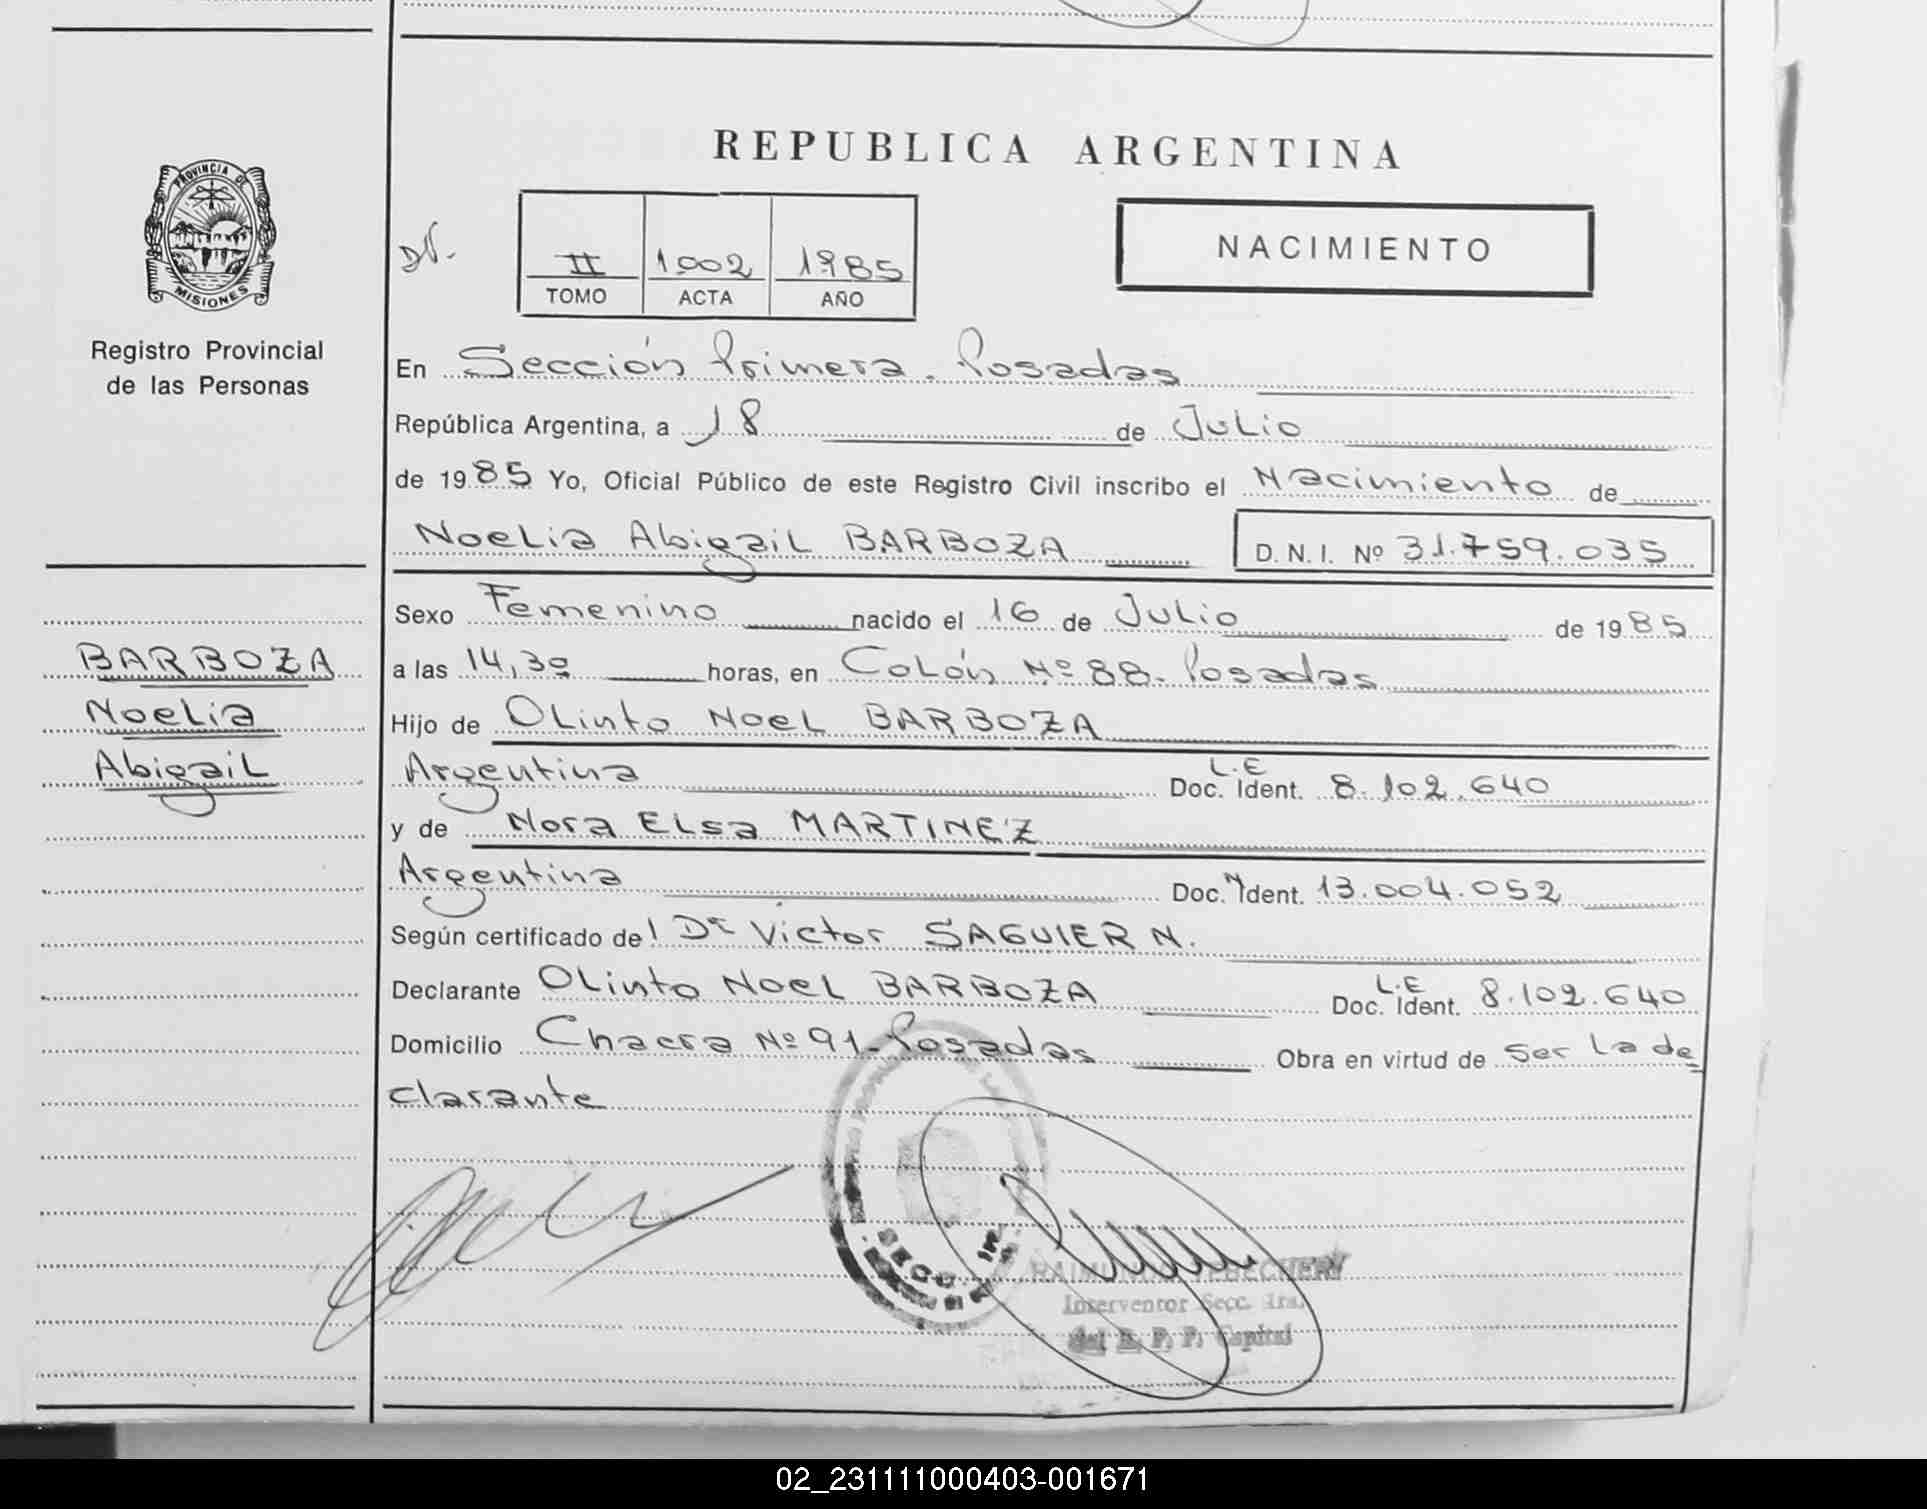 REPUBLICA ARGENTINA
PROVINCIA DE
MISIONES
Registro Provincial
de las Personas
II 1002 1985
TOMO ACTA AÑO
NACIMIENTO
En Sección Primera. Posadas
República Argentina, a 18 de Julio
de 1985 Yo, Oficial Público de este Registro Civil inscribo el Nacimiento de
Noelia Abigail BARBOZA D.N.I. Nº 31.759.035
Sexo Femenino nacido el 16 de Julio de 1985
BARBOZA
Noelia
Abigail
a las 14,30 horas, en Colón Nº 88. Posadas
Hijo de Olinto Noel BARBOZA
Argentina Doc. Ident. L.E 8.102.640
y de Nora Elsa MARTINEZ
Argentina Doc. Ident. 13.004.052
Según certificado del Dr Victor SAGUIER N.
Declarante Olinto Noel BARBOZA Doc. Ident. L.E 8.102.640
Domicilio Chacra Nº 91-Posadas Obra en virtud de ser la de
clarante
SECC.
Interventor Secc. 1ra.
del R. P. P. Capital
02_231111000403-001671